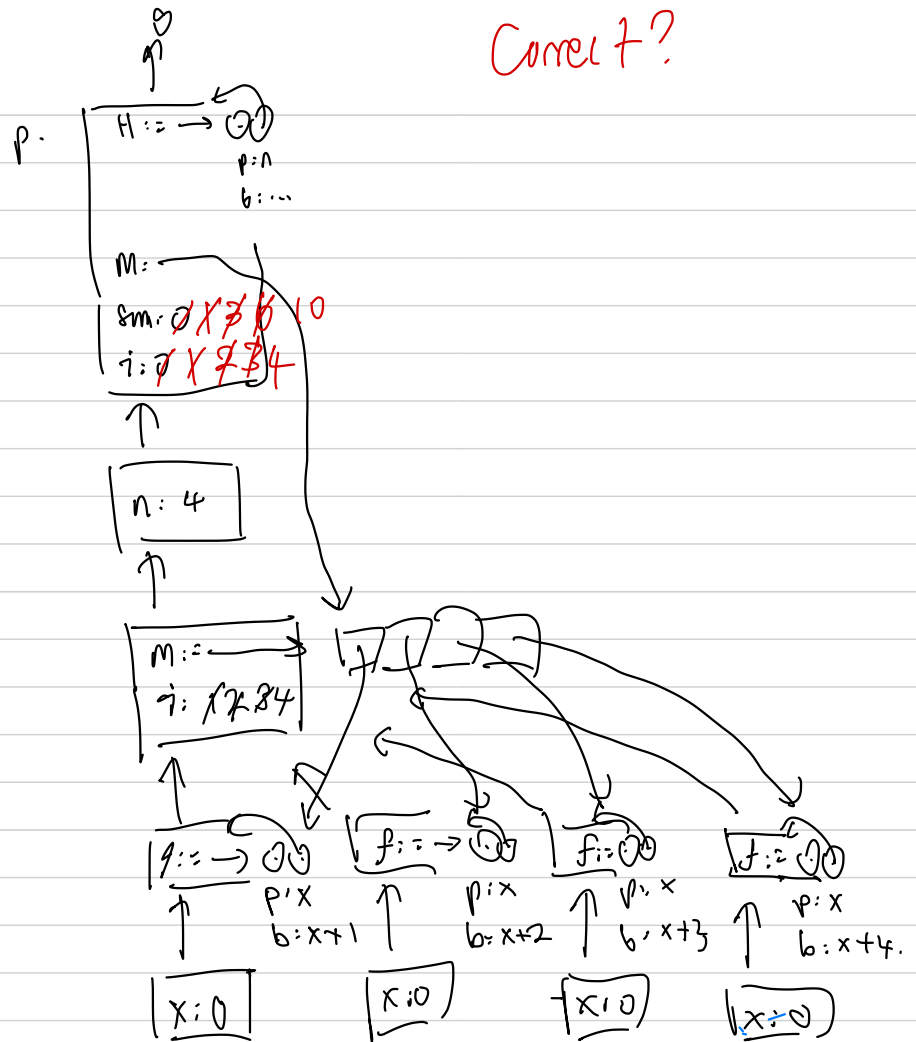 Correct?
p.
H := →
p: n
b: ...
M:
sm: 0 1 3 6 10
i: 0 1 2 3 4
n: 4
m :=
i: 1 2 3 4
f: = →
f: = →
f: =
f: =
p: x
p: x
p: x
p: x
b: x+1
b: x+2
b: x+3
b: x+4.
x: 0
x: 0
x: 0
x: 0